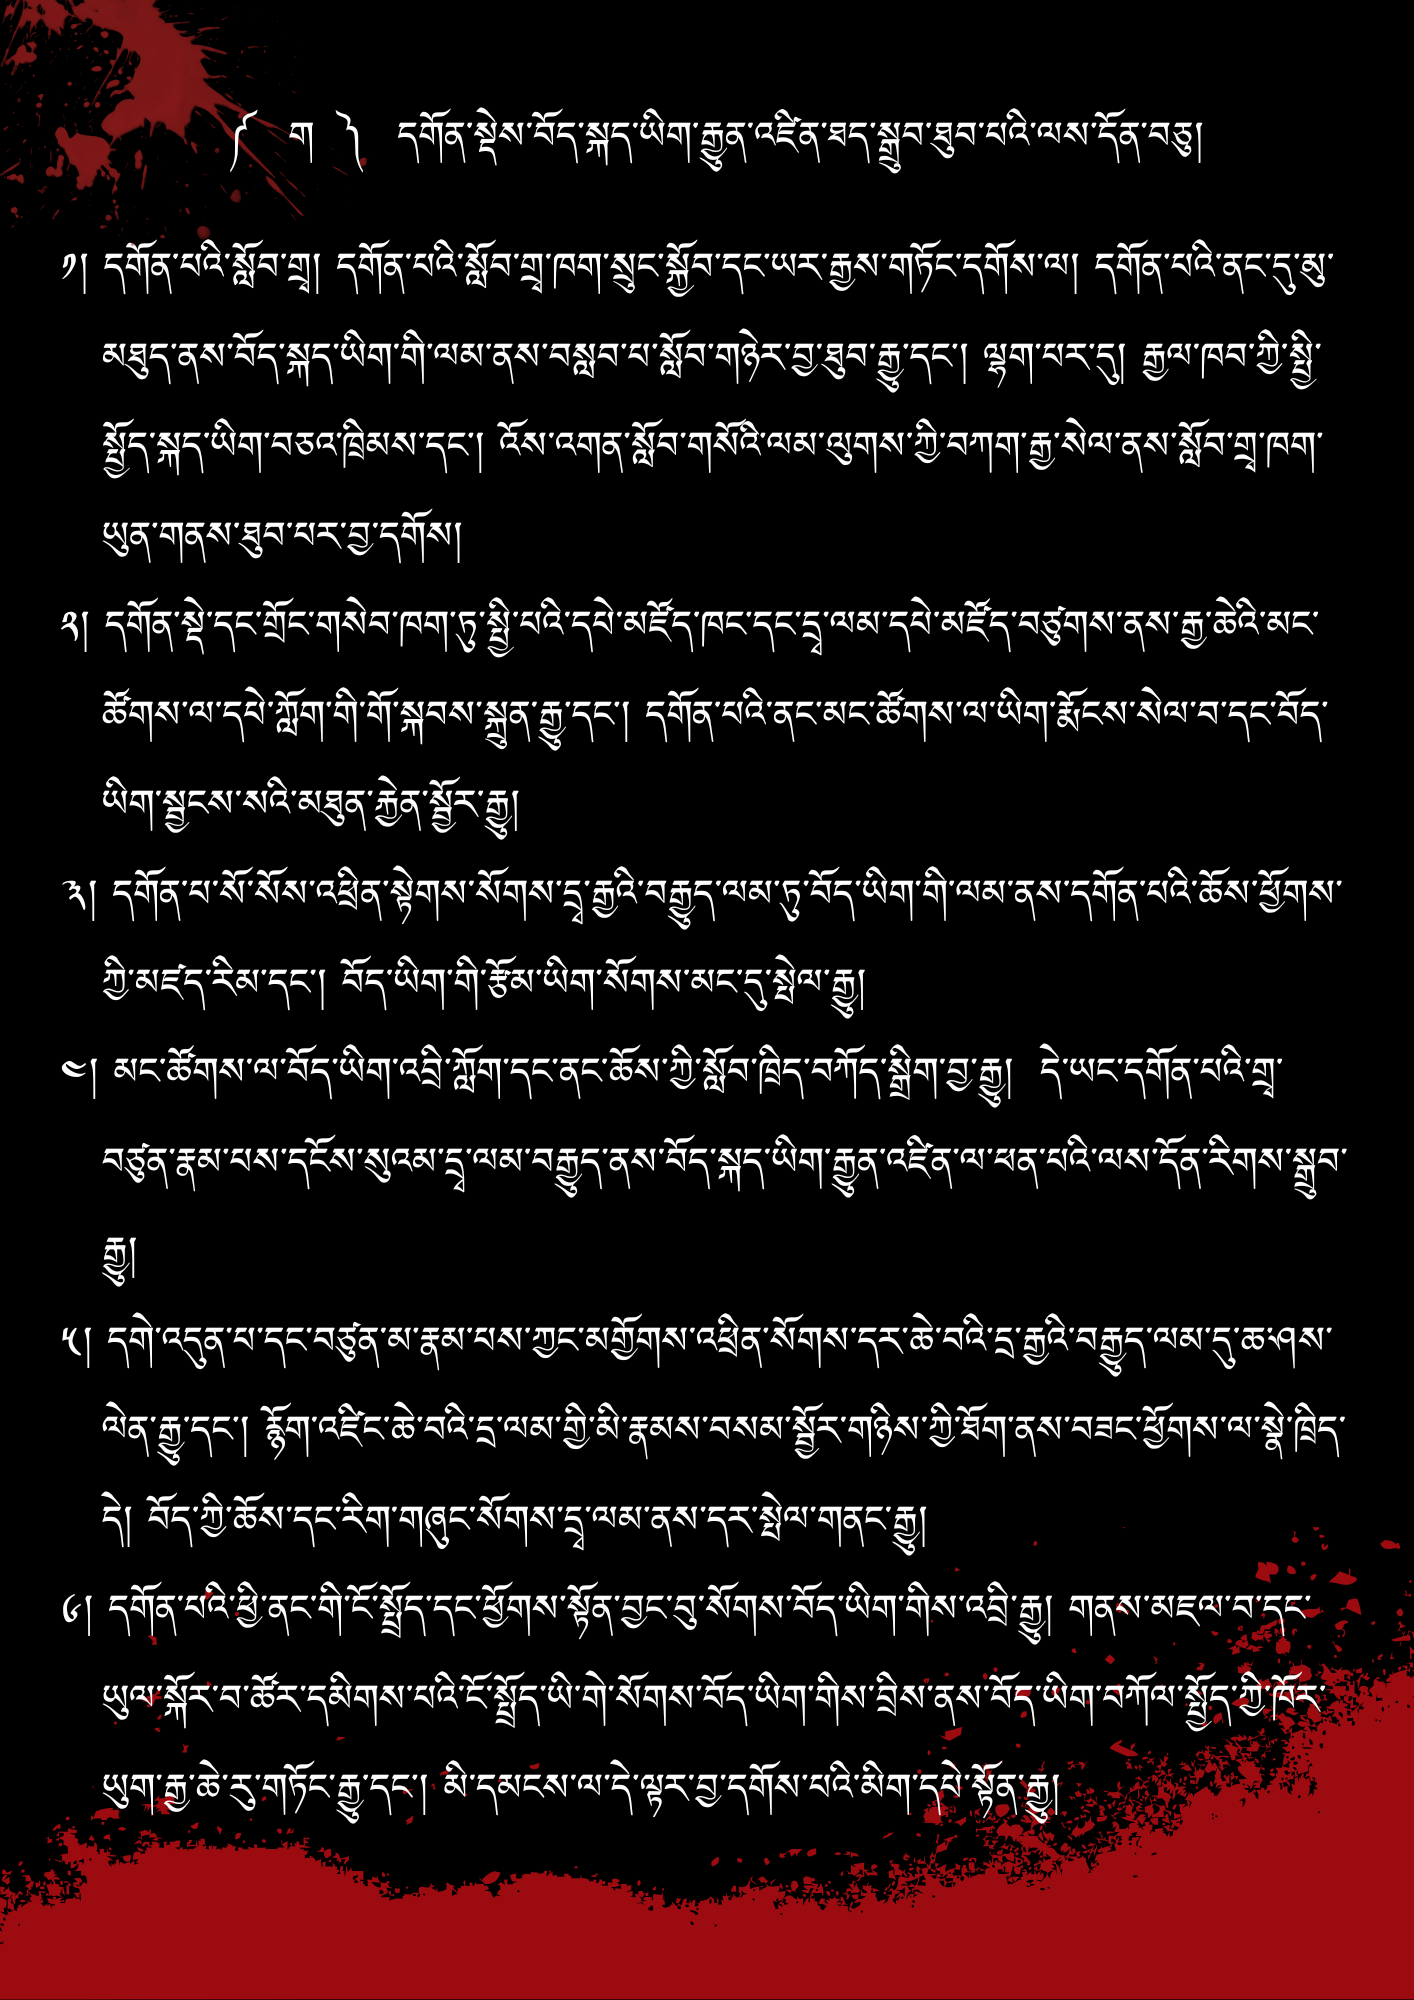 ༼ ག ༽ དགོན་སྡེས་བོད་སྐད་ཡིག་རྒྱུན་འཛིན་ཐད་སྒྲུབ་ཐུབ་པའི་ལས་དོན་བཅུ།
༡། དགོན་པའི་སློབ་གྲྭ། དགོན་པའི་སློབ་གྲྭ་ཁག་སྲུང་སྐྱོབ་དང་ཡར་རྒྱས་གཏོང་དགོས་ལ། དགོན་པའི་ནང་དུ་མུ་
མཐུད་ནས་བོད་སྐད་ཡིག་གི་ལམ་ནས་བསླབ་པ་སློབ་གཉེར་བྱ་ཐུབ་རྒྱུ་དང་། ལྷག་པར་དུ། རྒྱལ་ཁབ་ཀྱི་སྤྱི་
སྤྱོད་སྐད་ཡིག་བཅའ་ཁྲིམས་དང་། འོས་འགན་སློབ་གསོའི་ལམ་ལུགས་ཀྱི་བཀག་རྒྱ་སེལ་ནས་སློབ་གྲྭ་ཁག་
ཡུན་གནས་ཐུབ་པར་བྱ་དགོས།
༢། དགོན་སྡེ་དང་གྲོང་གསེབ་ཁག་ཏུ་སྤྱི་པའི་དཔེ་མཛོད་ཁང་དང་དྲྭ་ལམ་དཔེ་མཛོད་བཙུགས་ནས་རྒྱ་ཆེའི་མང་
ཚོགས་ལ་དཔེ་ཀློག་གི་གོ་སྐབས་སྐྲུན་རྒྱུ་དང་། དགོན་པའི་ནང་མང་ཚོགས་ལ་ཡིག་རྨོངས་སེལ་བ་དང་བོད་
ཡིག་སྦྱངས་སའི་མཐུན་རྐྱེན་སྦྱོར་རྒྱུ།
༣། དགོན་པ་སོ་སོས་འཕྲིན་སྟེགས་སོགས་དྲྭ་རྒྱའི་བརྒྱུད་ལམ་ཏུ་བོད་ཡིག་གི་ལམ་ནས་དགོན་པའི་ཆོས་ཕྱོགས་
ཀྱི་མཛད་རིམ་དང་། བོད་ཡིག་གི་རྩོམ་ཡིག་སོགས་མང་དུ་སྤེལ་རྒྱུ།
༤། མང་ཚོགས་ལ་བོད་ཡིག་འབྲི་ཀློག་དང་ནང་ཆོས་ཀྱི་སློབ་ཁྲིད་བཀོད་སྒྲིག་བྱ་རྒྱུ། དེ་ཡང་དགོན་པའི་གྲྭ་
བཙུན་རྣམ་པས་དངོས་སུའམ་དྲྭ་ལམ་བརྒྱུད་ནས་བོད་སྐད་ཡིག་རྒྱུན་འཛིན་ལ་ཕན་པའི་ལས་དོན་རིགས་སྒྲུབ་
རྒྱུ།
༥། དགེ་འདུན་པ་དང་བཙུན་མ་རྣམ་པས་ཀྱང་མགྱོགས་འཕྲིན་སོགས་དར་ཆེ་བའི་དྲ་རྒྱའི་བརྒྱུད་ལམ་དུ་ཆ་ཤས་
ལེན་རྒྱུ་དང་། རྙོག་འཛིང་ཆེ་བའི་དྲ་ལམ་གྱི་མི་རྣམས་བསམ་སྦྱོར་གཉིས་ཀྱི་ཐོག་ནས་བཟང་ཕྱོགས་ལ་སྣེ་ཁྲིད་
དེ། བོད་ཀྱི་ཆོས་དང་རིག་གཞུང་སོགས་དྲྭ་ལམ་ནས་དར་སྤེལ་གནང་རྒྱུ།
༦། དགོན་པའི་ཕྱི་ནང་གི་ངོ་སྤྲོད་དང་ཕྱོགས་སྟོན་བྱང་བུ་སོགས་བོད་ཡིག་གིས་འབྲི་རྒྱུ། གནས་མཇལ་བ་དང་
ཡུལ་སྐོར་བ་ཚོར་དམིགས་པའི་ངོ་སྤྲོད་ཡི་གེ་སོགས་བོད་ཡིག་གིས་བྲིས་ནས་བོད་ཡིག་བཀོལ་སྤྱོད་ཀྱི་ཁོར་
ཡུག་རྒྱ་ཆེ་རུ་གཏོང་རྒྱུ་དང་། མི་དམངས་ལ་དེ་ལྟར་བྱ་དགོས་པའི་མིག་དཔེ་སྟོན་རྒྱུ།